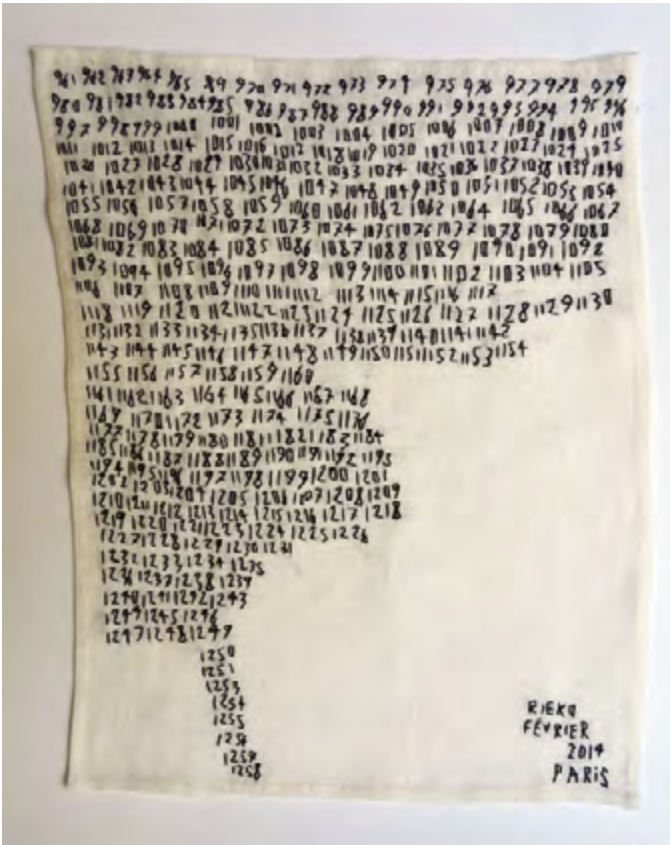 961 962 963 964 965 969 970 971 972 973 974 975 976 977 978 979
980 981 982 983 984 985 986 987 988 989 990 991 992 993 994 995 996
997 998 999 1000 1001 1002 1003 1004 1005 1006 1007 1008 1009 1010
1011 1012 1013 1014 1015 1016 1017 1018 1019 1020 1021 1022 1023 1024 1025
1026 1027 1028 1029 1030 1031 1032 1033 1034 1035 1036 1037 1038 1039 1040
1041 1042 1043 1044 1045 1046 1047 1048 1049 1050 1051 1052 1053 1054
1055 1056 1057 1058 1059 1060 1061 1062 1063 1064 1065 1066 1067
1068 1069 1070 1071 1072 1073 1074 1075 1076 1077 1078 1079 1080
1081 1082 1083 1084 1085 1086 1087 1088 1089 1090 1091 1092
1093 1094 1095 1096 1097 1098 1099 1100 1101 1102 1103 1104 1105
1106 1107 1108 1109 1110 1111 1112 1113 1114 1115 1116 1117
1118 1119 1120 1121 1122 1123 1124 1125 1126 1127 1128 1129 1130
1131 1132 1133 1134 1135 1136 1137 1138 1139 1140 1141 1142
1143 1144 1145 1146 1147 1148 1149 1150 1151 1152 1153 1154
1155 1156 1157 1158 1159 1160
1161 1162 1163 1164 1165 1166 1167 1168
1169 1170 1172 1173 1174 1175 1176
1177 1178 1179 1180 1181 1182 1183 1184
1185 1186 1187 1188 1189 1190 1191 1192 1193
1194 1195 1196 1197 1198 1199 1200 1201
1202 1203 1204 1205 1206 1207 1208 1209
1210 1211 1212 1213 1214 1215 1216 1217 1218
1219 1220 1221 1222 1223 1224 1225 1226
1227 1228 1229 1230 1231
1232 1233 1234 1235
1236 1237 1238 1239
1240 1241 1242 1243
1244 1245 1246
1247 1248 1249
1250
1251
1253
1254
1255
1256
1257
1258
RIEKO
FÉVRIER
2014
PARIS